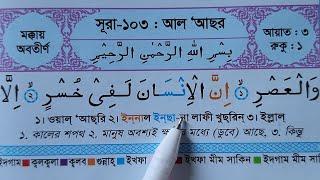 মক্কায়
অবতীর্ণ
সূরা-১০৩ : আল 'আছর
আয়াত : ৩
রুকু : ১
بِسْمِ اللهِ الرَّحْمٰنِ الرَّحِيْمِ
وَالْعَصْرِ ۝١ اِنَّ الْاِنْسَانَ لَفِيْ خُسْرٍ ۝٢ اِلَّا
১। ওয়াল 'আছরি ২। ইন্নাল ইনছা-না লাফী খুছরিন্ ৩। ইল্লাল
১. কালের শপথ ২. মানুষ অবশ্যই ক্ষতির মধ্যে (ডুবে) আছে, ৩. কিন্তু
ইদগাম কলকলা কলব গুন্নাহ্ ইখফা মীম সাকিন ইদগাম মীম সাকিন